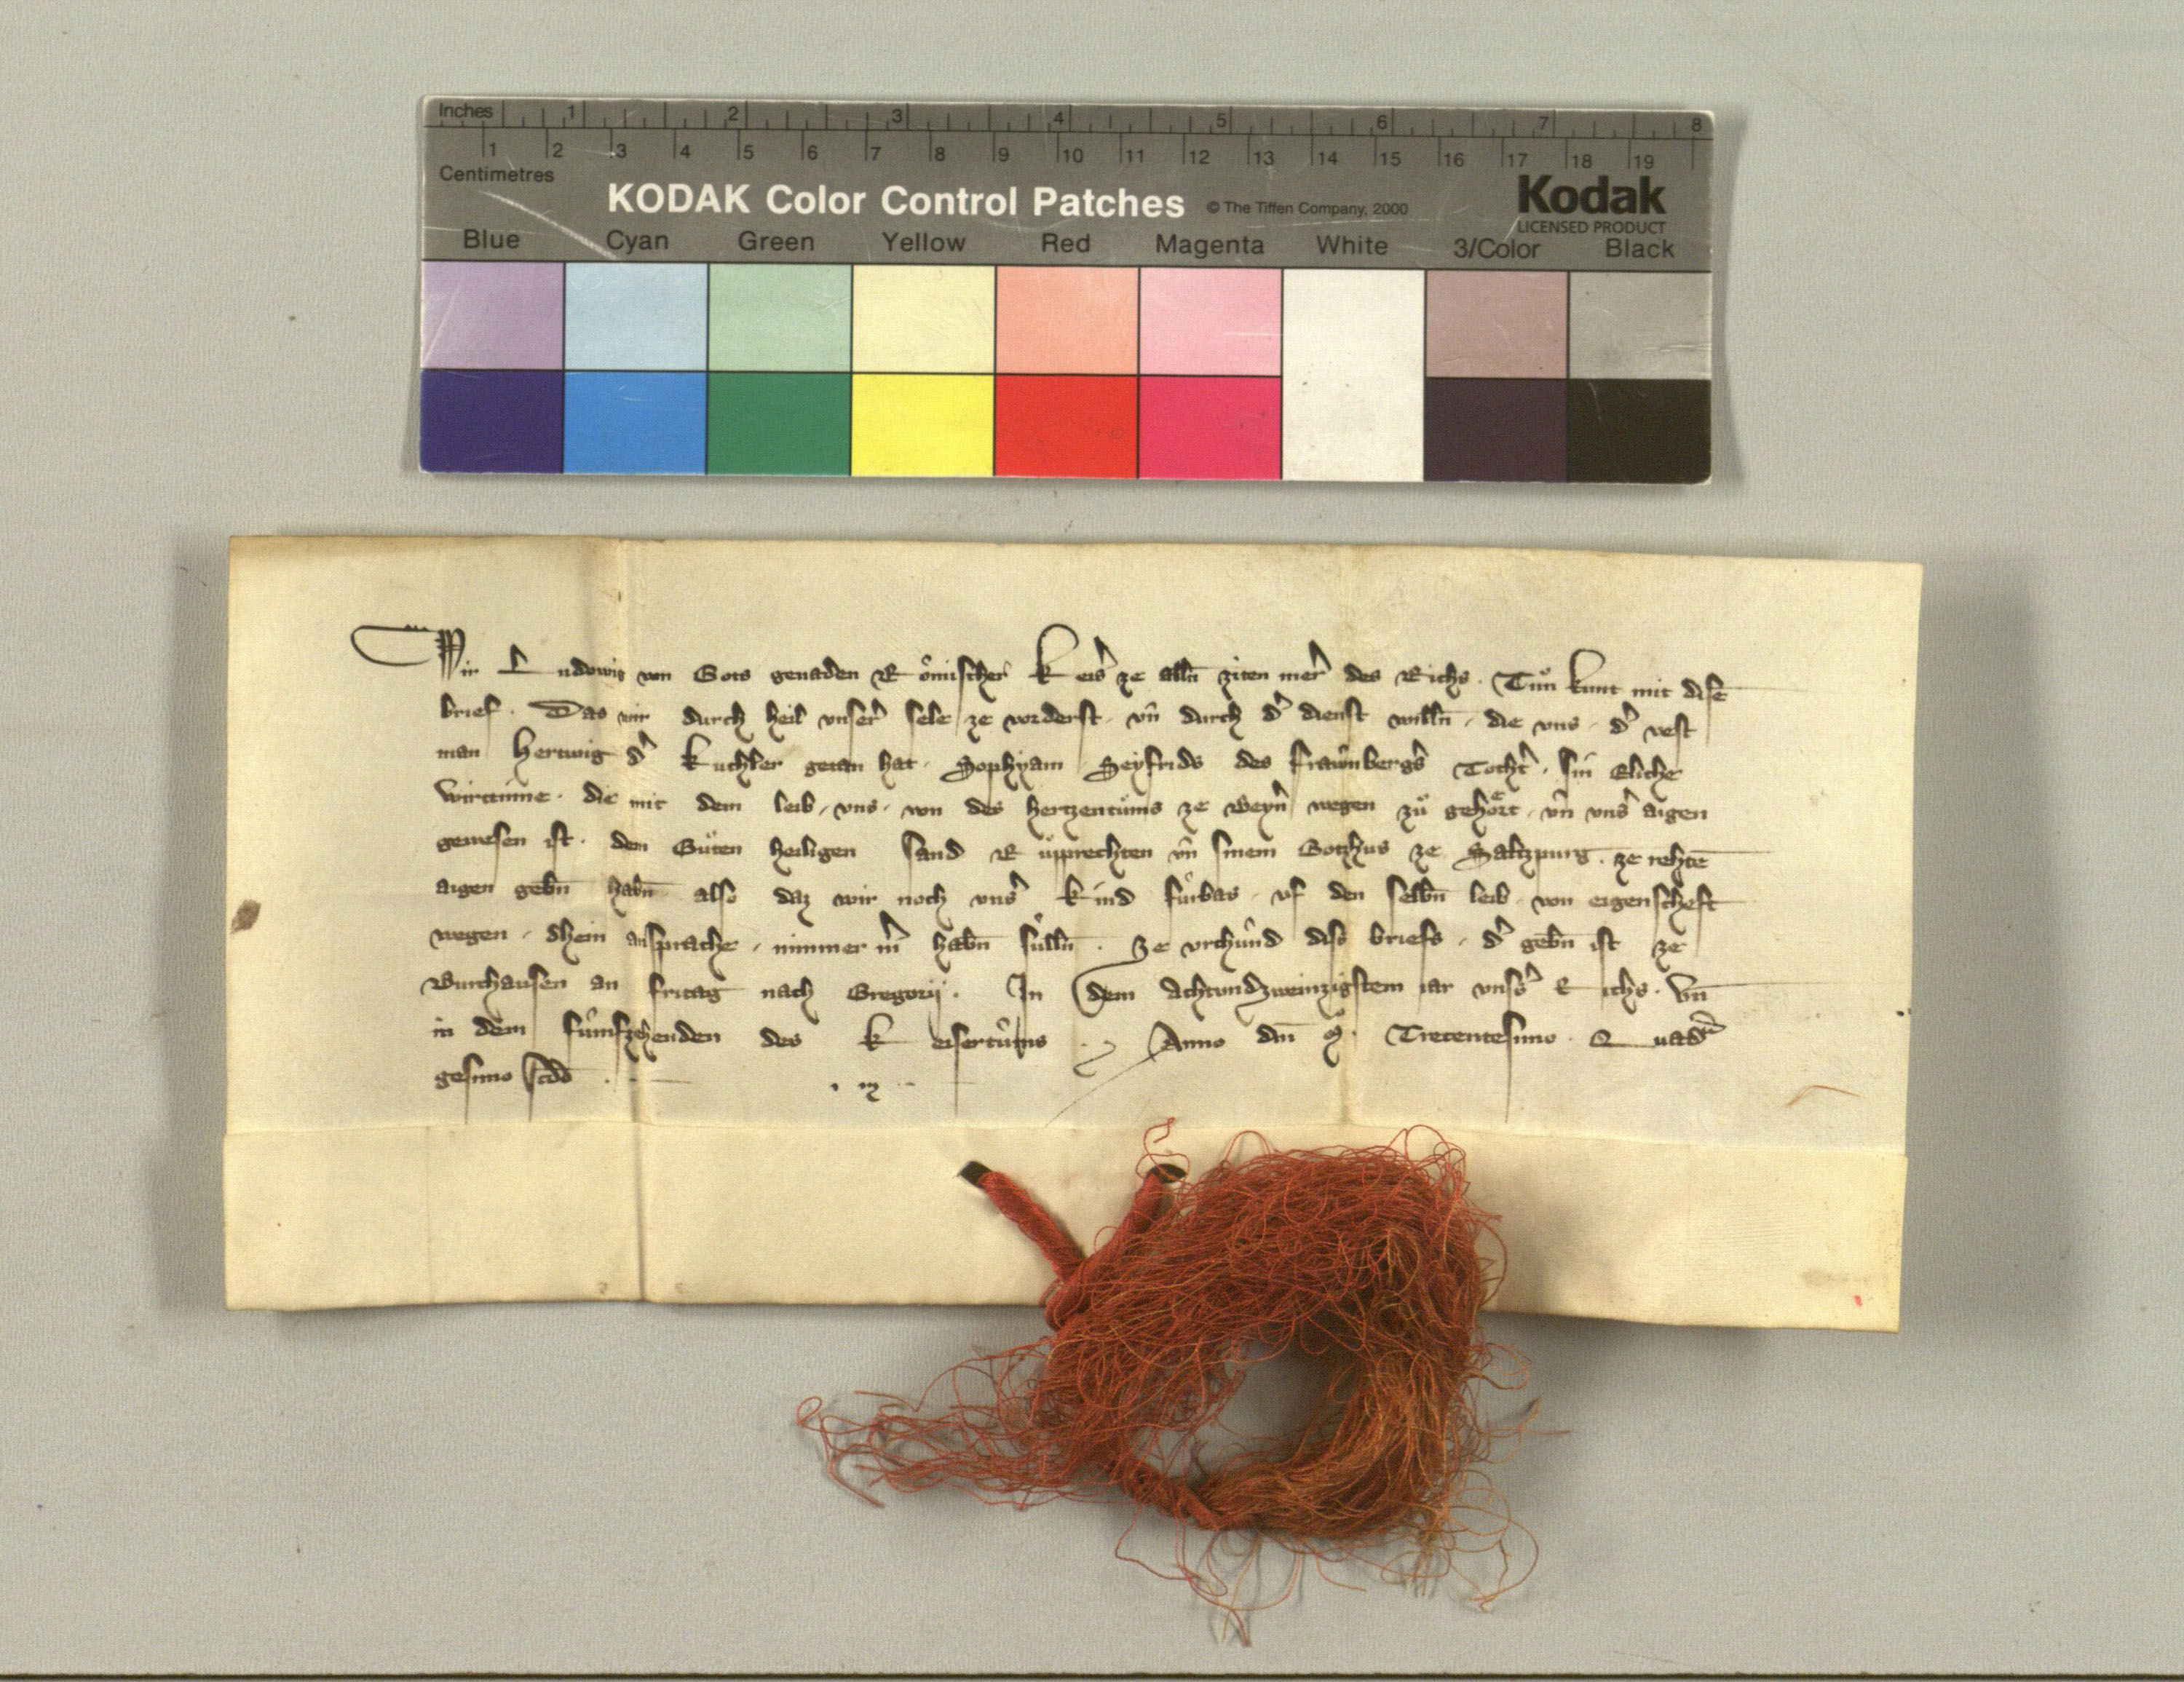 Inches 1 2 3 4 5 6 7 8
1 2 3 4 5 6 7 8 9 10 11 12 13 14 15 16 17 18 19
Centimetres
KODAK Color Control Patches © The Tiffen Company, 2000 Kodak
LICENSED PRODUCT
Blue Cyan Green Yellow Red Magenta White 3/Color Black
Wir Ludowig von Gots genaden Römischer Keisʼ ze alln̄ ziten merʼ des Richs. Tůn kunt mit disē
brief. Das wir durch heil vnserʼ sele ze vorderst. vn̄ durch dʼ dienst willn̄. die vns. dʼ vest
man Hertwig dʼ Kuchler getan hat. Sophyam Seyfrids des Frawnbergʼs Tochtʼ. sin Eliche
wirtinne. die mit dem leib. vns. von des hertzentůms ze Beyrn̄ wegen zů gehört. vn̄ vnsʼ aigen
gewesen ist. dem Gůten heiligen sand Růpprechten vn̄ sinem Gotzhus ze Saltzpurg. ze rehtē
aigen gebn̄ habn̄ also daz wir noch vnsʼ kind fürbas. vf den selbn̄ leib von eigenscheft
wegen. dhein ansprache. nimmer mʼ habn̄ sülln̄. Ze vrchünd diss briefs. dʼ gebn̄ ist ze
Burchausen an fritag nach Gregorij. In dem Achtundzweinzigstem iar vnsʼs Richs. vn̄
in dem fümfzehenden des Keisertůms. Anno dn̄i Mͦ. Trecentesimo. Quadra
gesimo scd̄o.